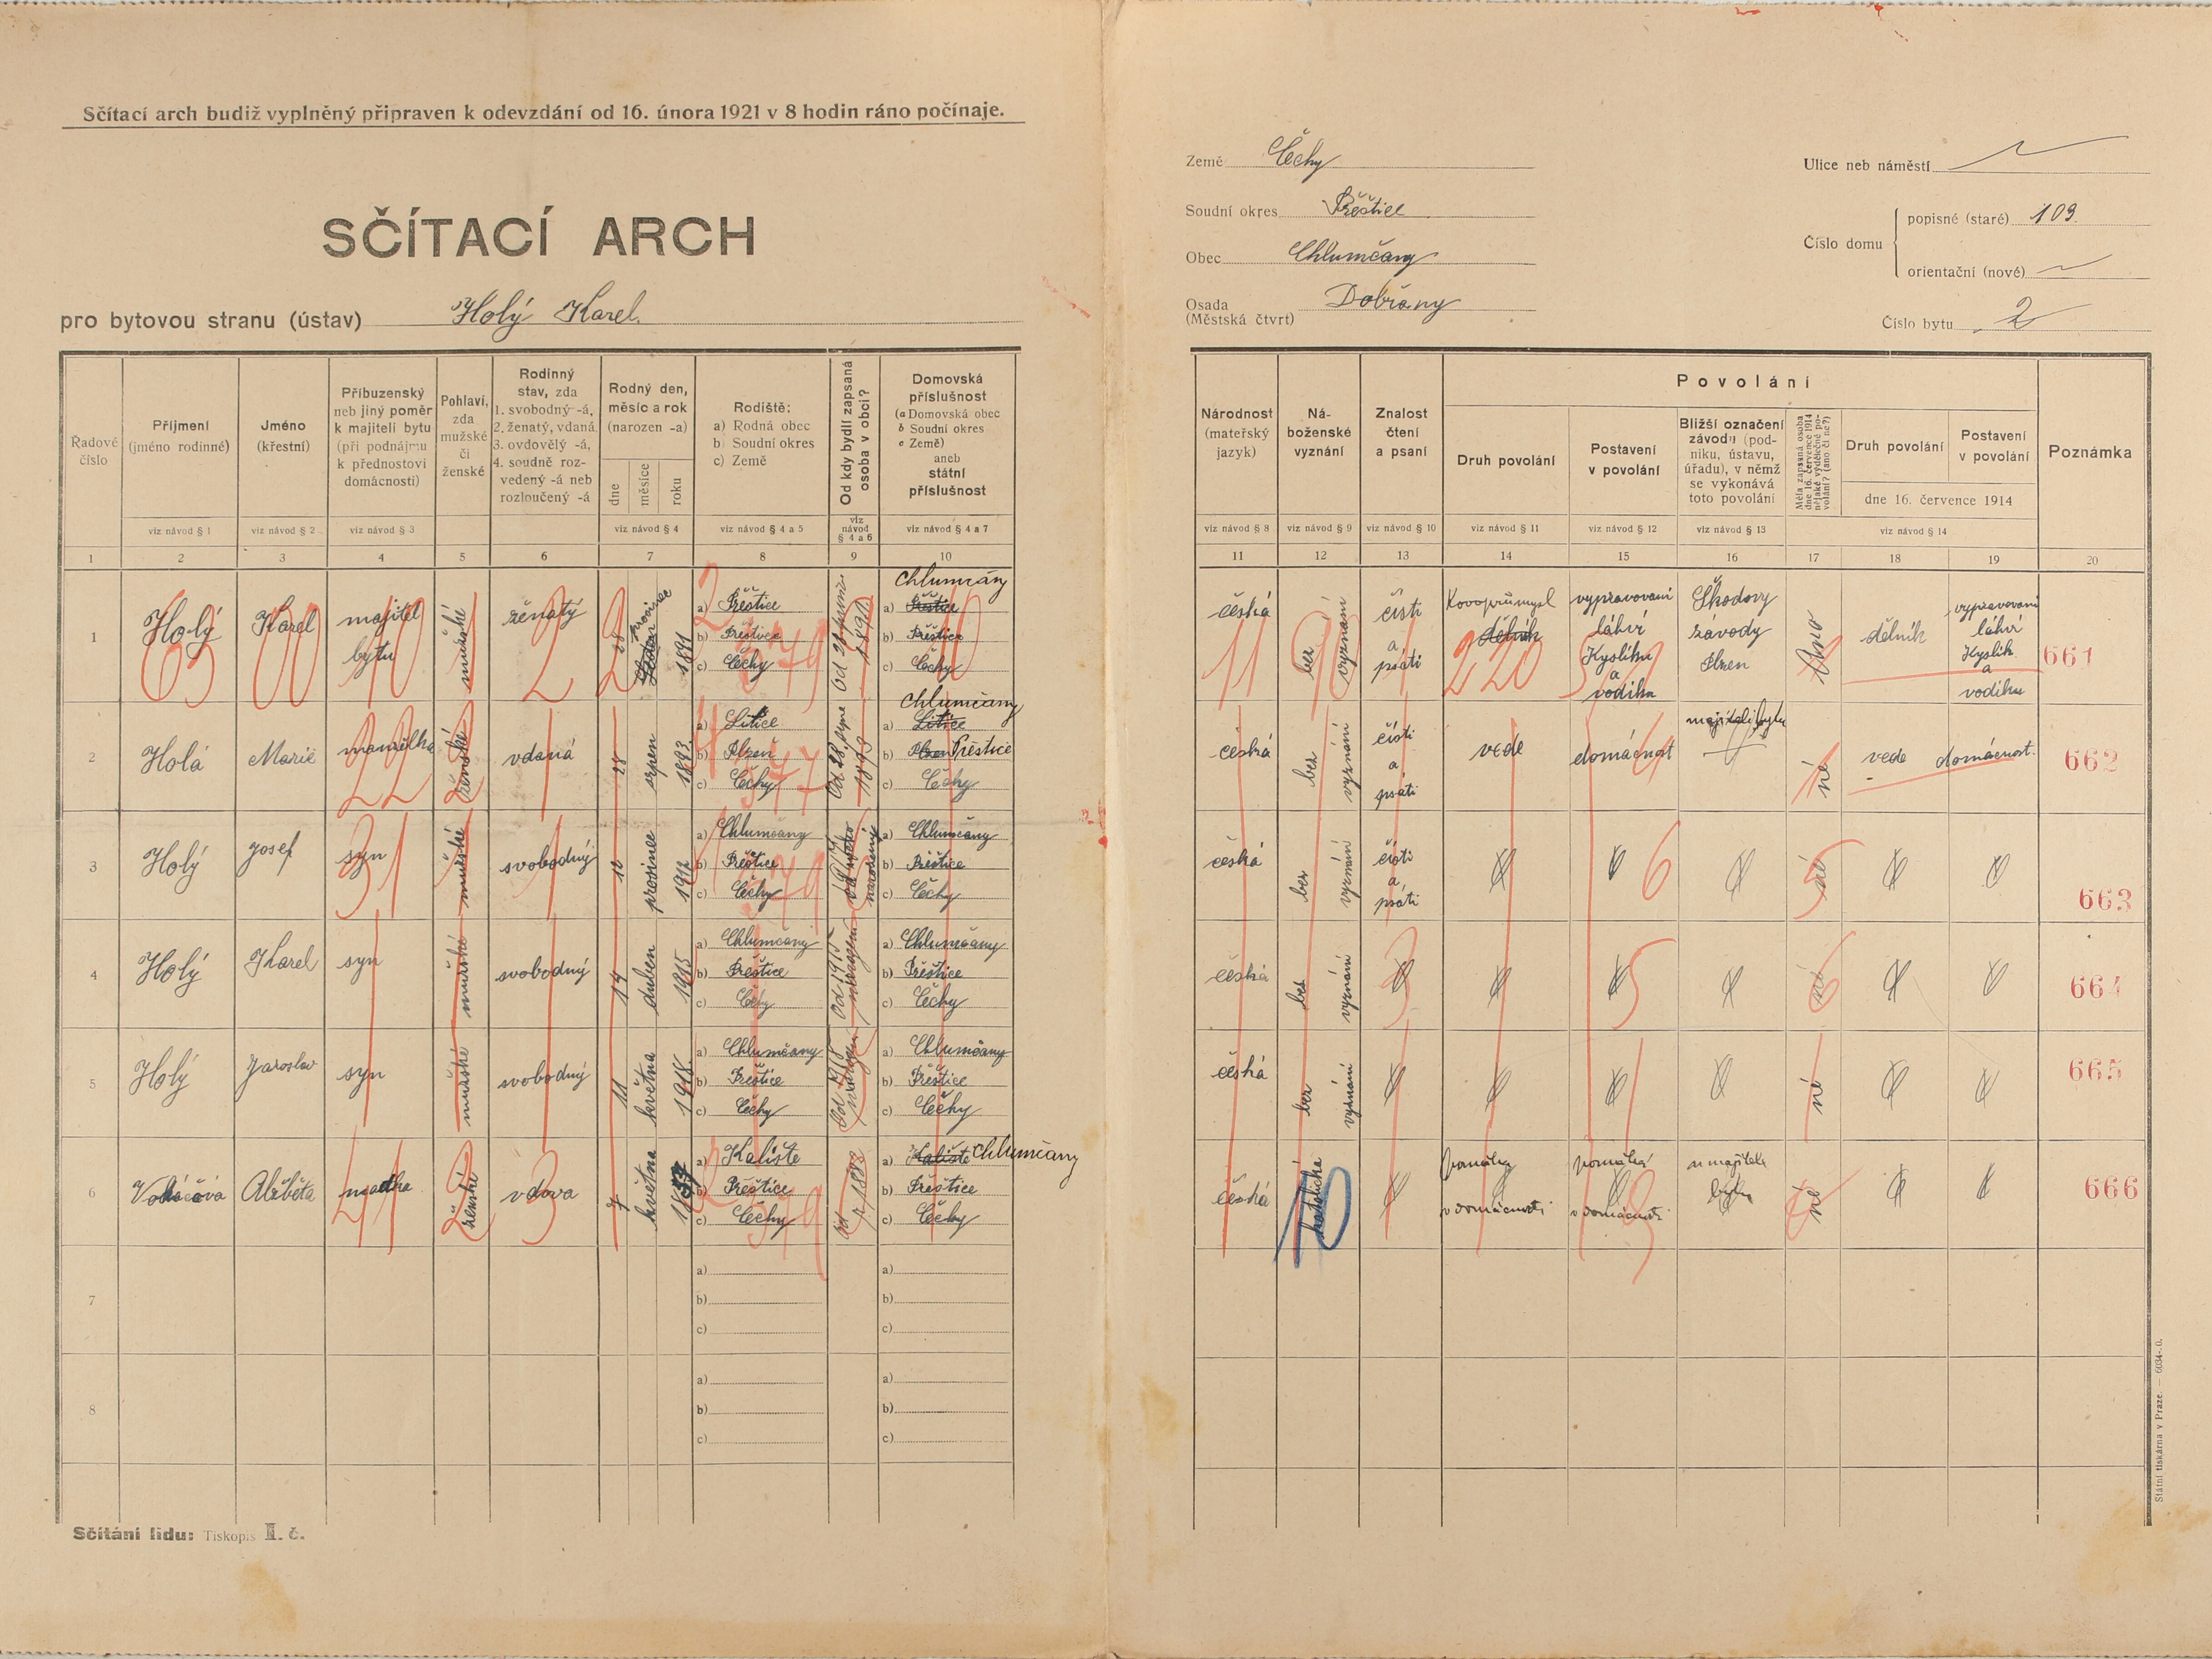 Sčítací arch budiž vyplněný připraven k odevzdání od 16. února 1921 v 8 hodin ráno počínaje.
SČÍTACÍ ARCH
pro bytovou stranu (ústav) Holý Karel.
Země Čechy
Soudní okres Přeštice
Obec Chlumčany
Osada (Městská čtvrť) Dobřany
Ulice neb náměstí
Číslo domu
popisné (staré) 109.
orientační (nové)
Číslo bytu 2
Řadové číslo
Příjmení (jméno rodinné)
Jméno (křestní)
Příbuzenský neb jiný poměr k majiteli bytu (při podnájmu k přednostovi domácnosti)
Pohlaví, zda mužské či ženské
Rodinný stav, zda 1. svobodný -á, 2. ženatý, vdaná, 3. ovdovělý -á, 4. soudně rozvedený -á neb rozloučený -á
Rodný den, měsíc a rok (narozen -a)
dne
měsíce
roku
Rodiště: a) Rodná obec b) Soudní okres c) Země
Od kdy bydlí zapsaná osoba v obci?
Domovská příslušnost (a Domovská obec b Soudní okres c Země) aneb státní příslušnost
Národnost (mateřský jazyk)
Náboženské vyznání
Znalost čtení a psaní
Povolání
Druh povolání
Postavení v povolání
Bližší označení závodu (podniku, ústavu, úřadu), v němž se vykonává toto povolání
Měla zapsaná osoba dne 16. července 1914 nějaké výdělečné povolání? (ano či ne?)
Druh povolání
Postavení v povolání
dne 16. července 1914
Poznámka
viz návod § 1
viz návod § 2
viz návod § 3
viz návod § 4
viz návod § 4 a 5
viz návod § 4 a 6
viz návod § 4 a 7
viz návod § 8
viz návod § 9
viz návod § 10
viz návod § 11
viz návod § 12
viz návod § 13
viz návod § 14
1 2 3 4 5 6 7 8 9 10 11 12 13 14 15 16 17 18 19 20
1 Holý Karel majitel bytu mužské ženatý 28 prosinec 1891
a) Přeštice b) Přeštice c) Čechy
Chlumčany
a) Přeštice b) Přeštice c) Čechy
česká bez vyznání čísti a psáti Kovoprůmysl dělník vypravovaní láhví Kyslíku a vodíku Škodovy závody Plzen Ano dělník vypravovaní láhví Kyslík a vodíku 661
2 Holá Marie manželka ženské vdaná 28 srpen 1893
a) Litice b) Plzeň c) Čechy
Chlumčany
a) Litice b) Plzen Přeštice c) Čechy
česká bez vyznání čísti a psáti vede domácnost majiteli bytu né vede domácnost. 662
3 Holý Josef syn mužské svobodný 10 prosinec 1912
a) Chlumčany b) Přeštice c) Čechy
a) Chlumčany b) Přeštice c) Čechy
česká bez vyznání čísti a psáti né 663
4 Holý Karel syn mužské svobodný 14 duben 1915
a) Chlumčany b) Přeštice c) Čechy
od 1915 narozen
a) Chlumčany b) Přeštice c) Čechy
česká bez vyznání né 664
5 Holý Jaroslav syn mužské svobodný 11 května 1918.
a) Chlumčany b) Přeštice c) Čechy
od 1918 narozen
a) Chlumčany b) Přeštice c) Čechy
česká bez vyznání né 665
6 Alžběta matka ženské vdova 7 května 1837
a) Kaliště b) Přeštice c) Čechy
od r. 1882
a) Kaliště Chlumčany b) Přeštice c) Čechy
česká katolická pomáhá v domácnosti pomáhá v domácnosti u majitele bytu né 666
7
a)
b)
c)
a)
b)
c)
8
a)
b)
c)
a)
b)
c)
Sčítání lidu: Tiskopis II. č.
Státní tiskárna v Praze. — 6034-.0.